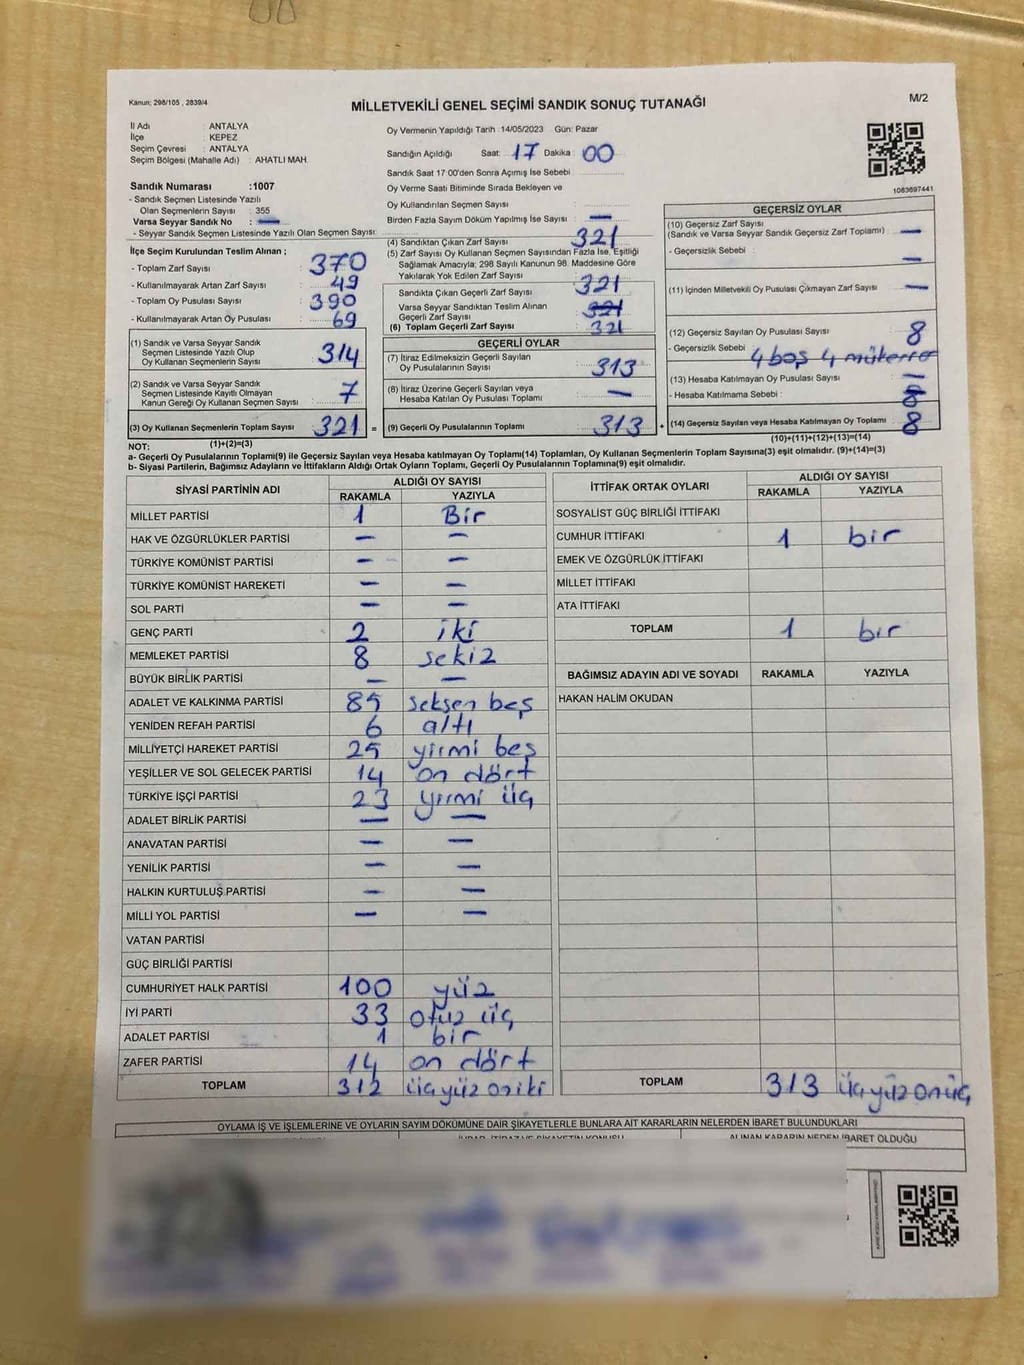 Kanun; 298/105 , 2839/4
MİLLETVEKİLİ GENEL SEÇİMİ SANDIK SONUÇ TUTANAĞI
M/2
İl Adı : ANTALYA
İlçe : KEPEZ
Seçim Çevresi : ANTALYA
Seçim Bölgesi (Mahalle Adı) : AHATLI MAH.
Sandık Numarası :1007
- Sandık Seçmen Listesinde Yazılı
Olan Seçmenlerin Sayısı : 355
Varsa Seyyar Sandık No : —
- Seyyar Sandık Seçmen Listesinde Yazılı Olan Seçmen Sayısı:
Oy Vermenin Yapıldığı Tarih :14/05/2023 Gün: Pazar
Sandığın Açıldığı Saat: 17 Dakika : 00
Sandık Saat 17:00'den Sonra Açımış İse Sebebi :
Oy Verme Saati Bitiminde Sırada Bekleyen ve
Oy Kullandırılan Seçmen Sayısı :
Birden Fazla Sayım Döküm Yapılmış İse Sayısı : —
1083697441
İlçe Seçim Kurulundan Teslim Alınan ;
- Toplam Zarf Sayısı : 370
- Kullanılmayarak Artan Zarf Sayısı : 49
- Toplam Oy Pusulası Sayısı : 390
- Kullanılmayarak Artan Oy Pusulası : 69
(1) Sandık ve Varsa Seyyar Sandık
Seçmen Listesinde Yazılı Olup
Oy Kullanan Seçmenlerin Sayısı : 314
(2) Sandık ve Varsa Seyyar Sandık
Seçmen Listesinde Kayıtlı Olmayan
Kanun Gereği Oy Kullanan Seçmen Sayısı : 7
(3) Oy Kullanan Seçmenlerin Toplam Sayısı : 321 =
(1)+(2)=(3)
(4) Sandıktan Çıkan Zarf Sayısı : 321
(5) Zarf Sayısı Oy Kullanan Seçmen Sayısından Fazla İse, Eşitliği
Sağlamak Amacıyla; 298 Sayılı Kanunun 98. Maddesine Göre
Yakılarak Yok Edilen Zarf Sayısı :
Sandıkta Çıkan Geçerli Zarf Sayısı : 321
Varsa Seyyar Sandıktan Teslim Alınan
Geçerli Zarf Sayısı : 321
(6) Toplam Geçerli Zarf Sayısı : 321
GEÇERLİ OYLAR
(7) İtiraz Edilmeksizin Geçerli Sayılan
Oy Pusulalarının Sayısı : 313
(8) İtiraz Üzerine Geçerli Sayılan veya
Hesaba Katılan Oy Pusulası Toplamı : —
(9) Geçerli Oy Pusulalarının Toplamı : 313 +
GEÇERSİZ OYLAR
(10) Geçersiz Zarf Sayısı
(Sandık ve Varsa Seyyar Sandık Geçersiz Zarf Toplamı) : —
- Geçersizlik Sebebi : —
(11) İçinden Milletvekili Oy Pusulası Çıkmayan Zarf Sayısı : —
(12) Geçersiz Sayılan Oy Pusulası Sayısı : 8
- Geçersizlik Sebebi : 4 boş 4 mükerrer
(13) Hesaba Katılmayan Oy Pusulası Sayısı : —
- Hesaba Katılmama Sebebi : 8
(14) Geçersiz Sayılan veya Hesaba Katılmayan Oy Toplamı : 8
(10)+(11)+(12)+(13)=(14)
NOT:
a- Geçerli Oy Pusulalarının Toplamı(9) ile Geçersiz Sayılan veya Hesaba katılmayan Oy Toplamı(14) Toplamları, Oy Kullanan Seçmenlerin Toplam Sayısına(3) eşit olmalıdır. (9)+(14)=(3)
b- Siyasi Partilerin, Bağımsız Adayların ve İttifakların Aldığı Ortak Oyların Toplamı, Geçerli Oy Pusulalarının Toplamına(9) eşit olmalıdır.
SİYASİ PARTİNİN ADI ALDIĞI OY SAYISI
RAKAMLA YAZIYLA
MİLLET PARTİSİ 1 Bir
HAK VE ÖZGÜRLÜKLER PARTİSİ — —
TÜRKİYE KOMÜNİST PARTİSİ — —
TÜRKİYE KOMÜNİST HAREKETİ — —
SOL PARTİ — —
GENÇ PARTİ 2 iki
MEMLEKET PARTİSİ 8 sekiz
BÜYÜK BİRLİK PARTİSİ — —
ADALET VE KALKINMA PARTİSİ 85 seksen beş
YENİDEN REFAH PARTİSİ 6 altı
MİLLİYETÇİ HAREKET PARTİSİ 25 yirmi beş
YEŞİLLER VE SOL GELECEK PARTİSİ 14 on dört
TÜRKİYE İŞÇİ PARTİSİ 23 yirmi üç
ADALET BİRLİK PARTİSİ — —
ANAVATAN PARTİSİ — —
YENİLİK PARTİSİ — —
HALKIN KURTULUŞ PARTİSİ — —
MİLLİ YOL PARTİSİ — —
VATAN PARTİSİ
GÜÇ BİRLİĞİ PARTİSİ
CUMHURİYET HALK PARTİSİ 100 yüz
İYİ PARTİ 33 otuz üç
ADALET PARTİSİ 1 bir
ZAFER PARTİSİ 14 on dört
TOPLAM 312 üçyüz oniki
İTTİFAK ORTAK OYLARI ALDIĞI OY SAYISI
RAKAMLA YAZIYLA
SOSYALİST GÜÇ BİRLİĞİ İTTİFAKI
CUMHUR İTTİFAKI 1 bir
EMEK VE ÖZGÜRLÜK İTTİFAKI
MİLLET İTTİFAKI
ATA İTTİFAKI
TOPLAM 1 bir
BAĞIMSIZ ADAYIN ADI VE SOYADI RAKAMLA YAZIYLA
HAKAN HALİM OKUDAN
TOPLAM 313 üçyüz onüç
OYLAMA İŞ VE İŞLEMLERİNE VE OYLARIN SAYIM DÖKÜMÜNE DAİR ŞİKAYETLERLE BUNLARA AİT KARARLARIN NELERDEN İBARET BULUNDUKLARI
ALINAN KARARIN NEDEN İBARET OLDUĞU